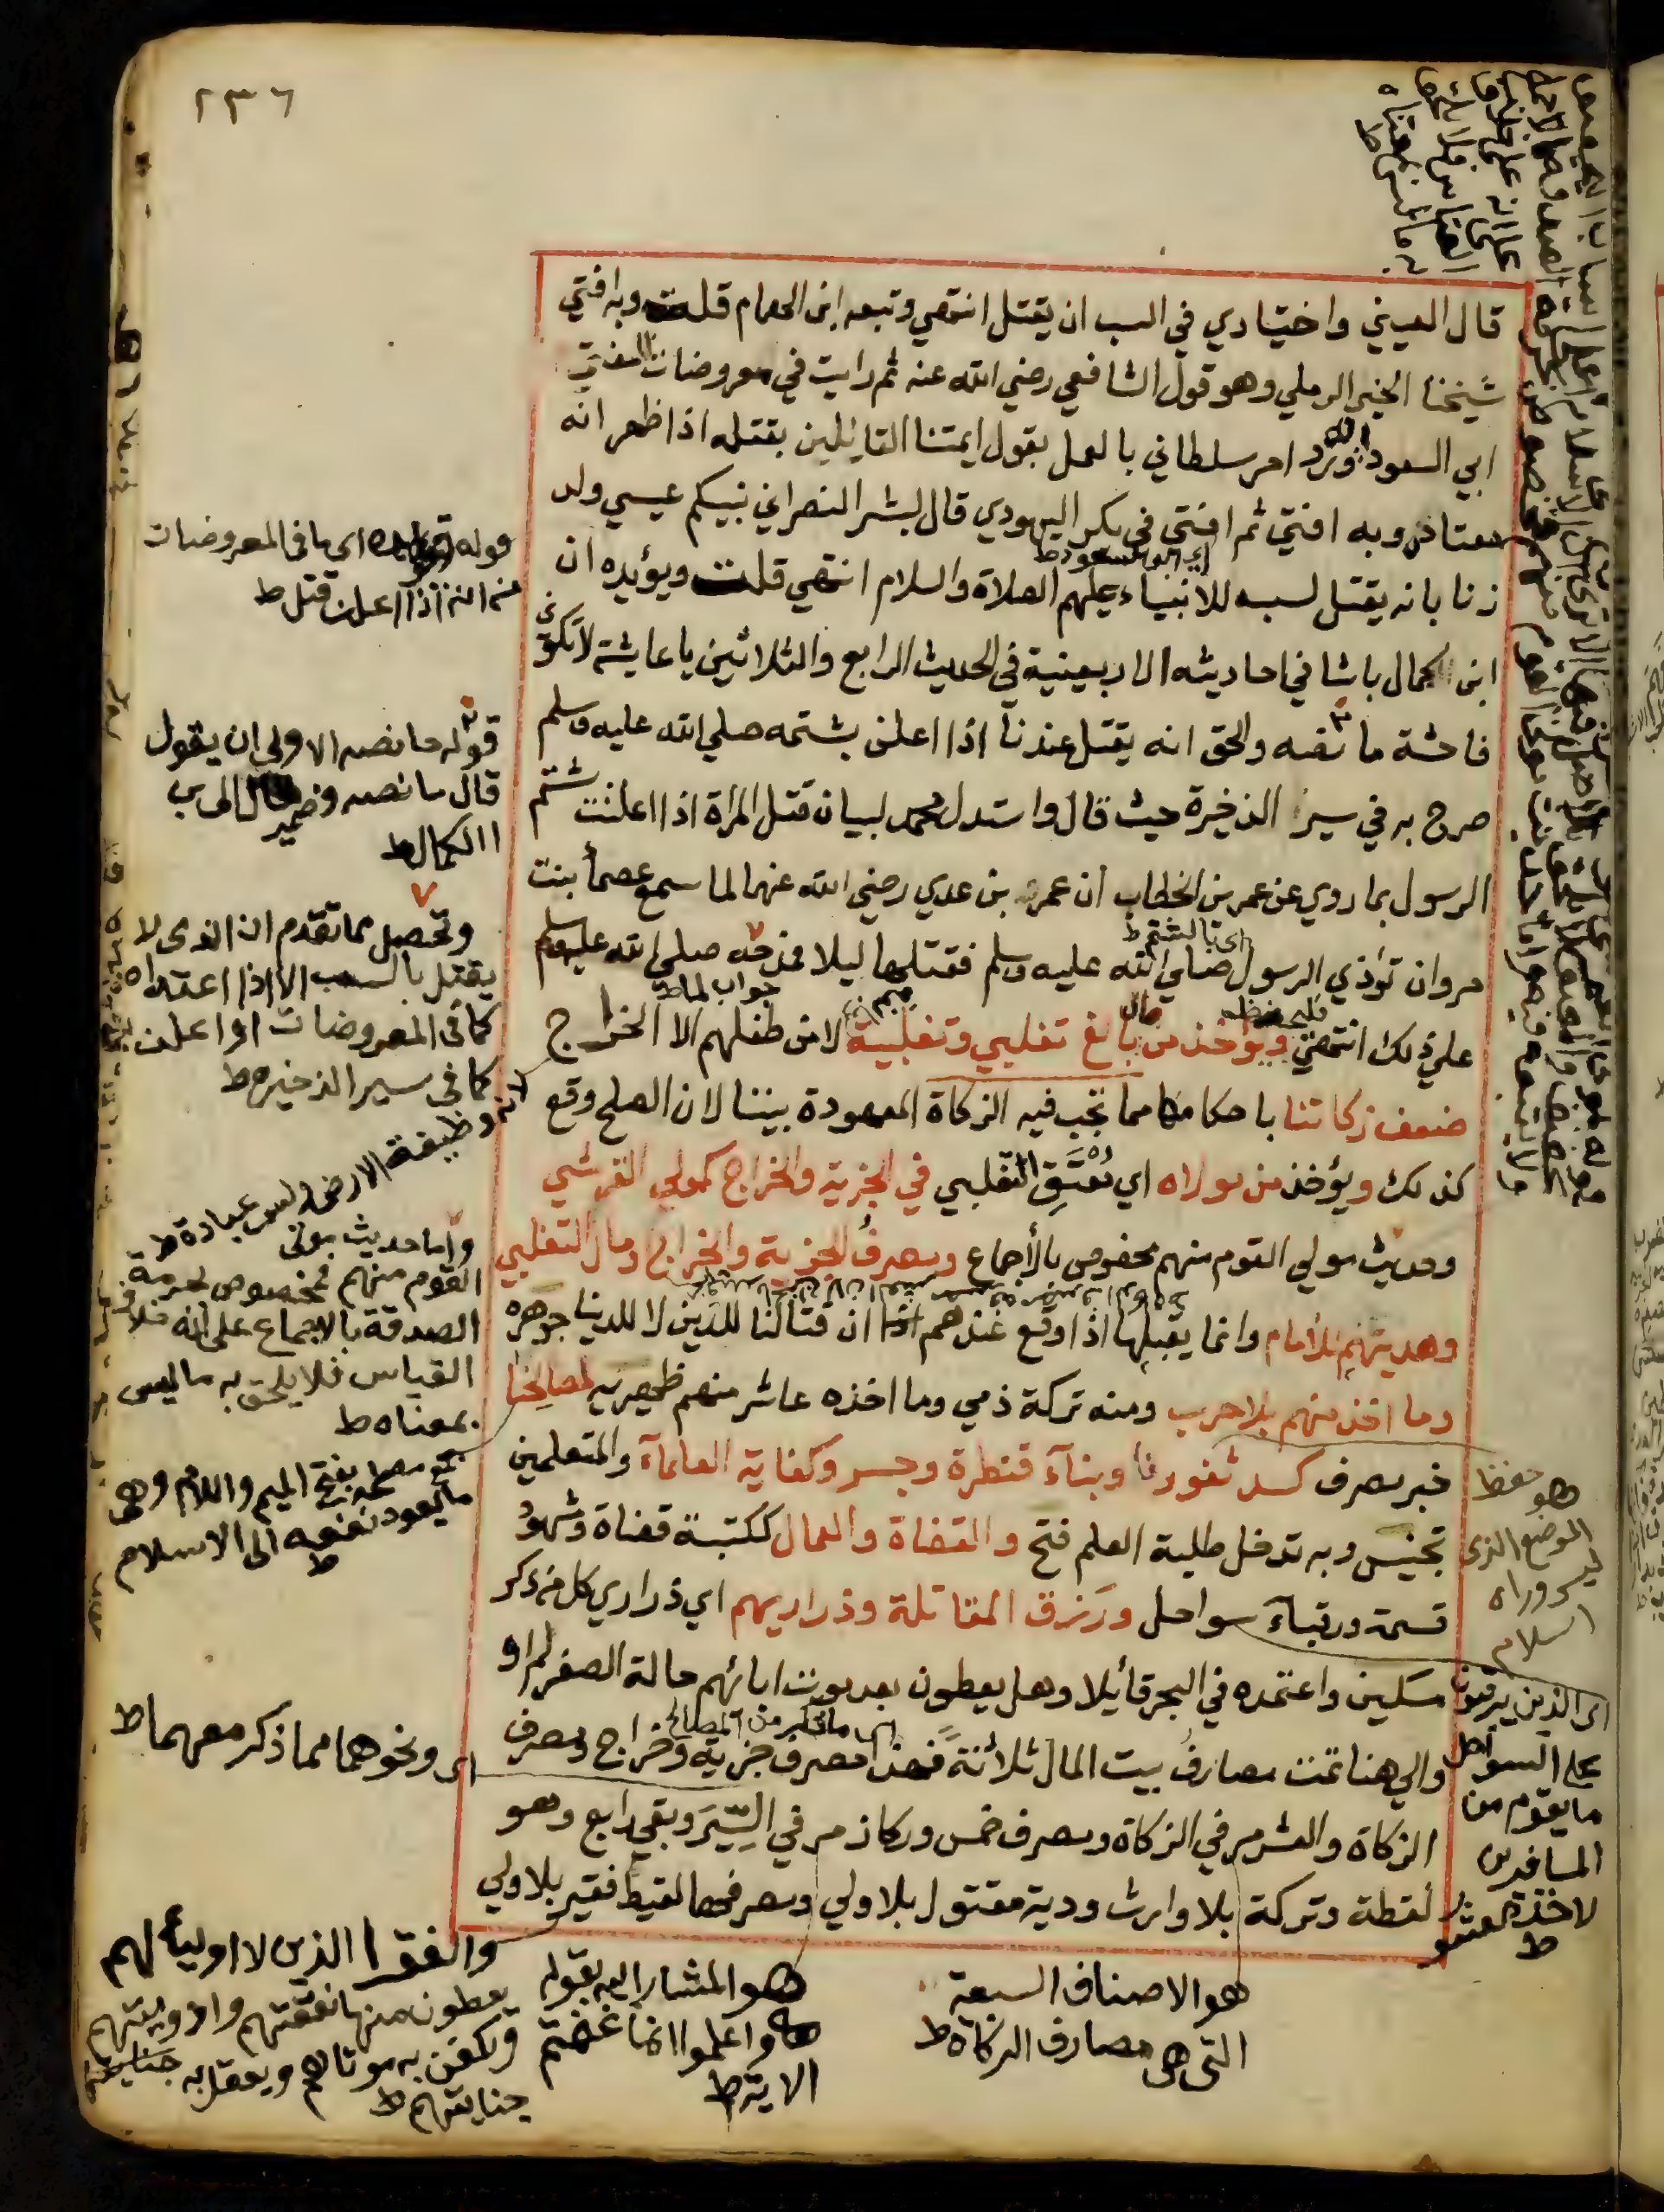 ٢٣٦
قال العيني واختياري في السب ان يقتل انتهي وتبعه ابن الهمام قلت وبه افتي
شيخنا الخير الرملي وهو قول الشافعي رضي الله عنه ثم رايت في معروضات المفتي
ابي السعود انه ورد امر سلطاني بالعمل بقول ايمتنا القائلين بقتله اذا ظهر انه
معتاده وبه افتي ثم افتي في بكر اليهودي قال لبشر النصراني نبيكم عيسي ولد
زنا بانه يقتل لسبه للانبياء عليهم الصلاة والسلام انتهي قلت ويؤيده ان
اي ابو السعود ط
ابن الكمال باشا في احاديثه الاربعينية في الحديث الرابع والثلاثين يا عايشة لا تكوني
فاحشة ما نصه والحق انه يقتل عندنا اذا اعلن بشتمه صلي الله عليه وسلم
صرح به في سير الذخيرة حيث قال واستدل محمد لبيان قتل المراة اذا اعلنت بشتم
الرسول بما روي عن عمر بن الخطاب ان عمير بن عدي رضي الله عنهما لما سمع عصما بنت
مروان تؤذي الرسول صلي الله عليه وسلم فقتلها ليلا مدحه صلي الله عليه وسلم
اى بالشتم ط
جواب لما ط
علي ذلك انتهي فليحفظ ويؤخذ من مال بالغ تغلبي وتغلبية لا من طفلهم الا الخراج
ضعف زكاتنا باحكامها مما تجب فيه الزكاة المعهودة بيننا لان الصلح وقع
كذلك ويؤخذ من مولاه اي معتق التغلبي في الجزية والخراج كمولي القرشي
وحديث مولي القوم منهم مخصوص بالأجماع ومصرف الجزية والخراج ومال التغلبي
وهديتهم للأمام وانما يقبلها اذا وقع عندهم ان قتالنا للدين لا للدنيا جوهره
وما اخذ منهم بلا حرب ومنه تركة ذمي وما اخذه عاشر منهم ظهيريه لمصالحنا
خبر مصرف كسد ثغورنا وبنآء قنطرة وجسر وكفاية العلمآء والمتعلمين
تجنيس وبه تدخل طلبة العلم فتح والقضاة والعمال ككتبة قضاة وشهود
قسمة ورقبآء سواحل ورزق المقاتلة وذراريهم اي ذراري كل من ذكر
مسكين واعتمده في البحر قائلا وهل يعطون بعد موت ابائهم حالة الصغر لم اره
والي هنا تمت مصارف بيت المال ثلاثة فهذا مصرف جزية وخراج ومصرف
اى ما ذكر من المصالح
الزكاة والعشر مر في الزكاة ومصرف خمس وركاز مر في السير وبقي رابع وهو
لقطة وتركة بلا وارث ودية مقتول بلا ولي ومصرفها لقيط فقير بلا ولي
اى ما فى المعروضات
من انه اذا اعلن قتل ط
قوله ما نصه الاولى ان يقول
قال ما نصه وضمير قال الى ابن
الكمال ط
وتحصل مما تقدم ان الذى لا
يقتل بالسب الا اذا اعتاده
كما فى المعروضات او اعلن به
كما فى سير الذخيره ط
لانه وظيفة الارض وليس عبادة ط
واما حديث مولى
القوم منهم فمخصوص بحرمة
الصدقة بالاجماع على انه خلاف
القياس فلا يلحق به ما ليس
بمعناه ط
جمع مصلحه بفتح الميم واللام وهى
ما يعود نفعه الى الاسلام
ط
هو حفظ
الموضع الذى
ليس وراءه
اسلام
اى الذين يرقبون
على السواحل
ما يقوم من
المسافرين
لاخذ العشر
ط
اى ونحوهما مما ذكر معهما ط
والفقرا الذين لا اولياء لهم
يعطون منها نفقتهم وادويتهم
ويكفن به موتاهم ويعقل به
جنايتهم ط
هو المشار اليه بقوله
واعلموا انما غنمتم
الاية ط
هو الاصناف السبعة
التى هى مصارف الزكاة ط